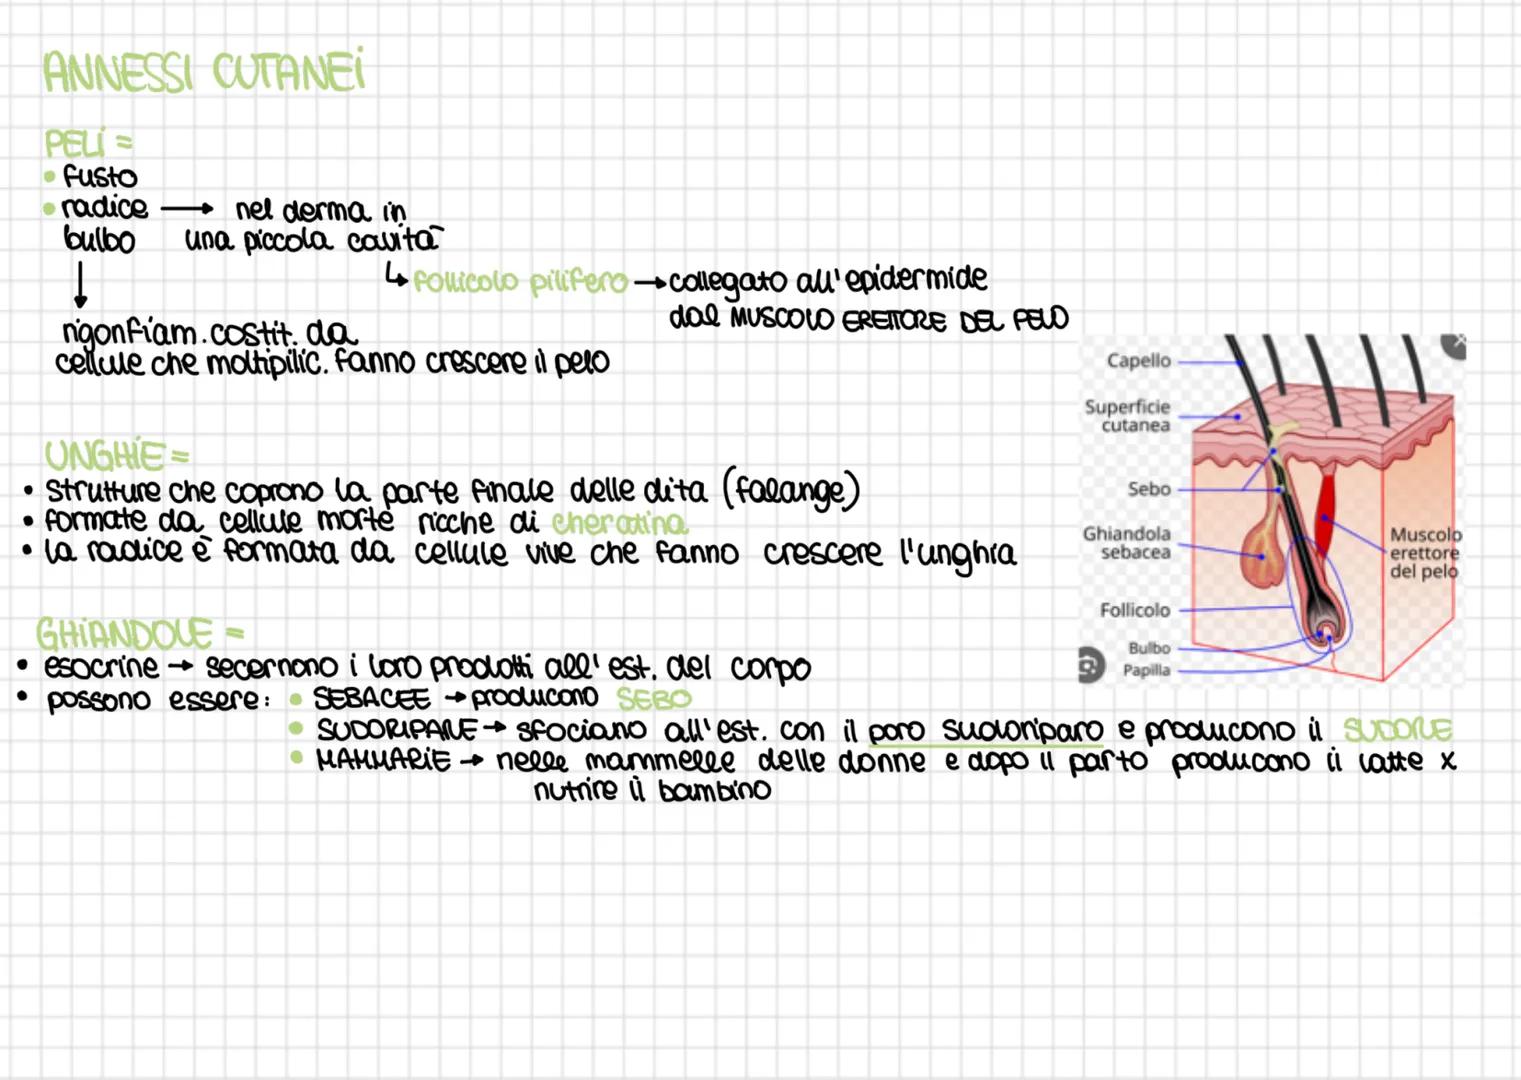 ANNESSI CUTANEI
PELI =
• fusto
• radice → nel derma in
bulbo una piccola cavità
↓ ↳ follicolo pilifero → collegato all'epidermide
dal MUSCOLO ERETTORE DEL PELO
rigonfiam. costit. da
cellule che moltipilic. fanno crescere il pelo
UNGHIE =
• strutture che coprono la parte finale delle dita (falange)
• formate da cellule morte ricche di cheratina
• la radice è formata da cellule vive che fanno crescere l'unghia
GHIANDOLE =
• esocrine → secernono i loro prodotti all'est. del corpo
• possono essere: • SEBACEE → producono SEBO
• SUDORIPARE → sfociano all'est. con il poro sudoriparo e producono il SUDORE
• MAMMARIE → nelle mammelle delle donne e dopo il parto producono il latte x
nutrire il bambino
Capello
Superficie
cutanea
Sebo
Ghiandola
sebacea
Follicolo
Bulbo
Papilla
Muscolo
erettore
del pelo